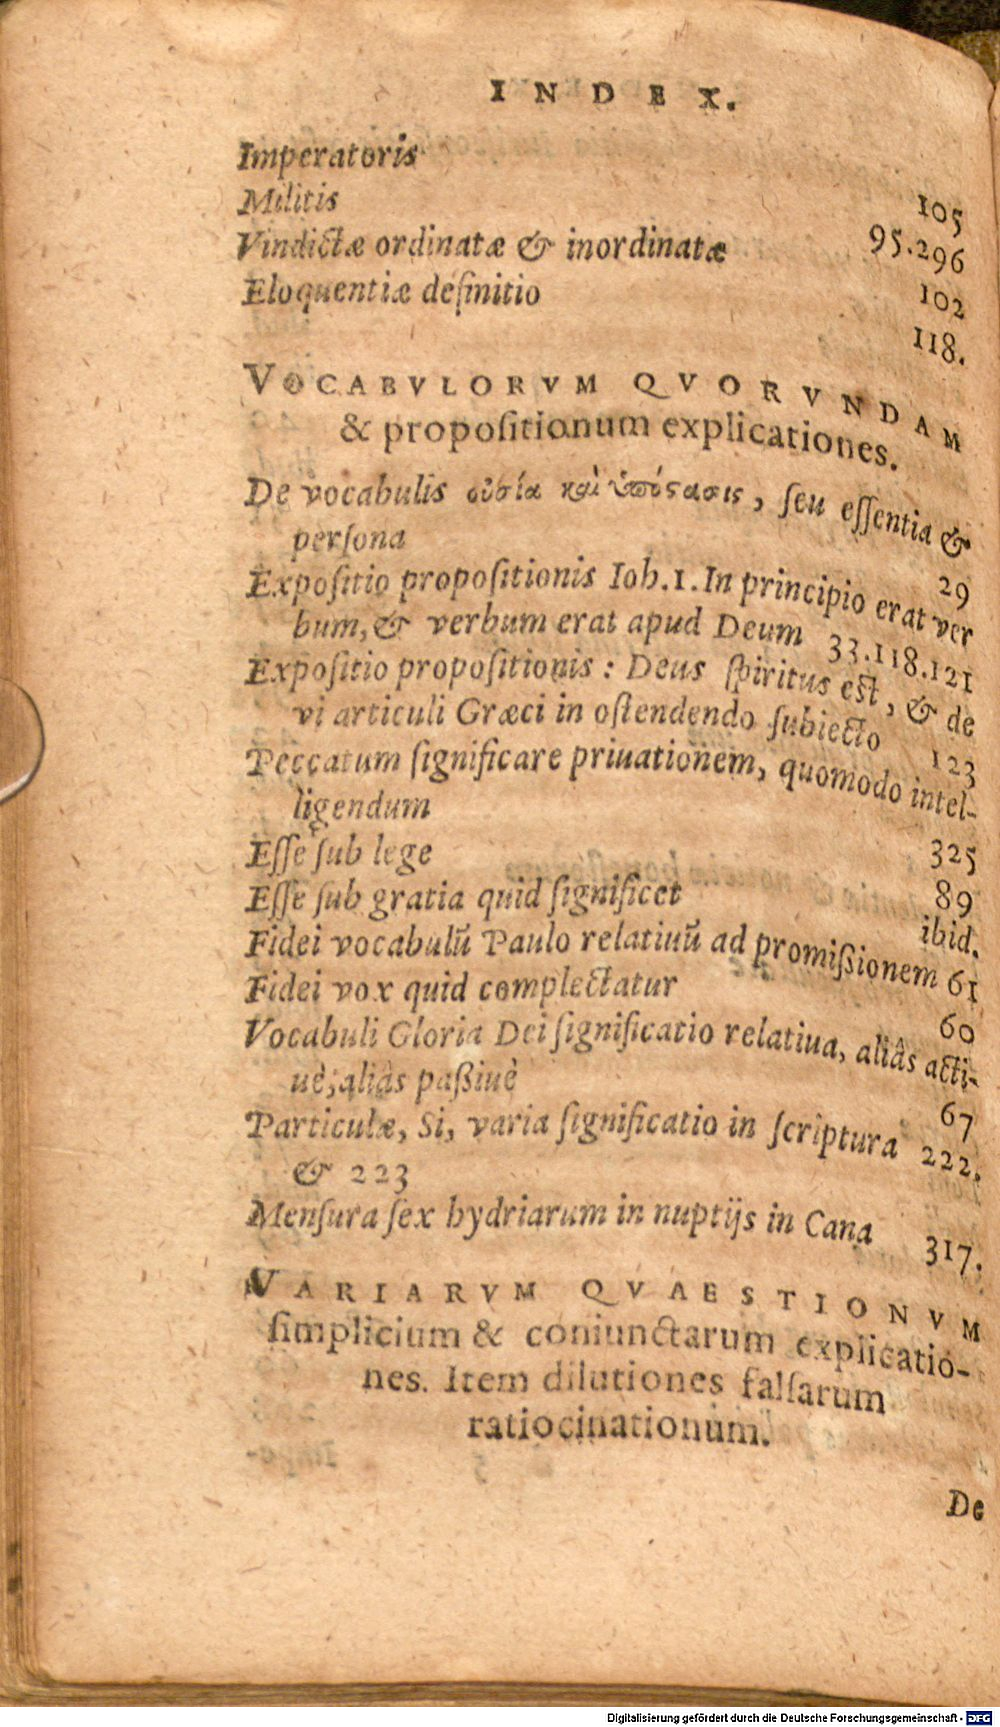 INDEX.
Imperatoris 105
Militis 95.296
Vindictæ ordinatæ & inordinatæ 102
Eloquentiæ definitio 118.
VOCABVLORVM QVORVNDAM
& propoſitionum explicationes.
De vocabulis οὐσία καὶ ὑπόστασις, ſeu eſſentia &
perſona 29
Expoſitio propoſitionis Ioh.1.In principio erat ver
bum, & verbum erat apud Deum 33.118.121
Expoſitio propoſitionis : Deus ſpiritus eſt, & de
vi articuli Græci in oſtendendo ſubiecto 123
Peccatum ſignificare priuationem, quomodo intel-
ligendum 325
Eſſe ſub lege 89
Eſſe ſub gratia quid ſignificet ibid.
Fidei vocabulũ Paulo relatiuũ ad promißionem 61
Fidei vox quid complectatur 60
Vocabuli Gloria Dei ſignificatio relatiua, aliâs acti-
uè, aliâs paßiuè 67
Particulæ, Si, varia ſignificatio in ſcriptura 222.
& 223
Menſura ſex hydriarum in nuptijs in Cana 317.
VARIARVM QVAESTIONVM
ſimplicium & coniunctarum explicatio-
nes. Item dilutiones falſarum
ratiocinationum.
De
Digitalisierung gefördert durch die Deutsche Forschungsgemeinschaft - DFG